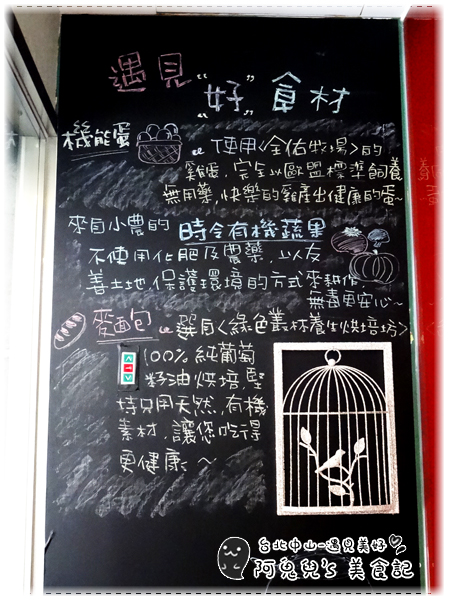 遇見
"好"食材
機能蛋
使用<全佑牧場>的
雞蛋,完全以歐盟標準飼養
無用藥,快樂的雞產出健康的蛋~
來自小農的 時令有機蔬果
不使用化肥及農藥,以友
善土地,保護環境的方式來耕作,
無毒更安心~
麥面包 選用<綠色叢林養生烘培坊>
100%純葡萄
籽油烘培,堅
持只用天然,有機
素材,讓您吃得
更健康~
台北中山-遇見美好
阿兔兒's 美食記